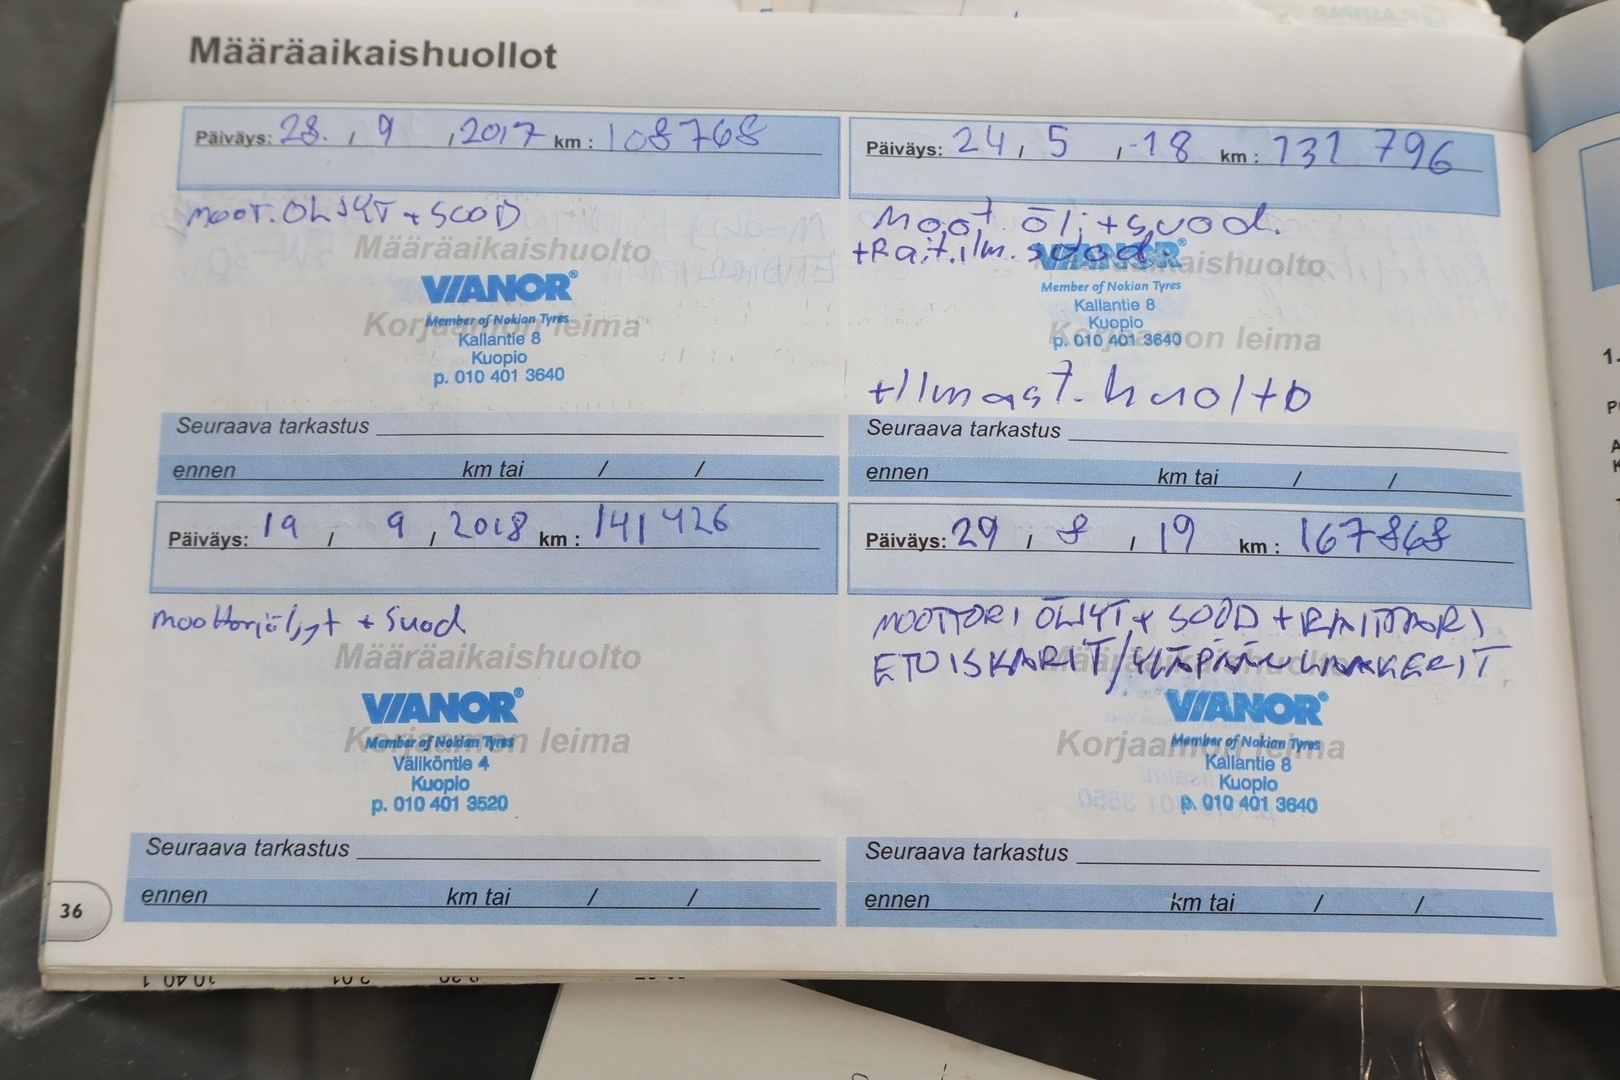 Määräaikaishuollot
Päiväys: 28. / 9 / 2017 km : 108768
MOOT. ÖLJYT + SUOD
Määräaikaishuolto
VIANOR®
Member of Nokian Tyres
Korjaamon leima
Kallantie 8
Kuopio
p. 010 401 3640
Seuraava tarkastus
ennen km tai / /
Päiväys: 24 / 5 / -18 km : 131 796
Moot. ölj + suod.
+Rait.ilm. suod.
Määräaikaishuolto
VIANOR®
Member of Nokian Tyres
Kallantie 8
Kuopio
Korjaamon leima
p. 010 401 3640
+Ilmast. huolto
Seuraava tarkastus
ennen km tai / /
Päiväys: 19 / 9 / 2018 km : 141 426
moottoriöljyt + suod
Määräaikaishuolto
VIANOR®
Korjaamon leima
Member of Nokian Tyres
Väliköntie 4
Kuopio
p. 010 401 3520
Seuraava tarkastus
ennen km tai / /
Päiväys: 29 / 8 / 19 km : 167868
MOOTTORI ÖLJYT + SUOD + RAITTARI
ETUISKARIT/YLÄPÄÄN LAAKERIT
Määräaikaishuolto
VIANOR®
Korjaamon leima
Member of Nokian Tyres
Kallantie 8
Kuopio
p. 010 401 3640
Seuraava tarkastus
ennen km tai / /
36